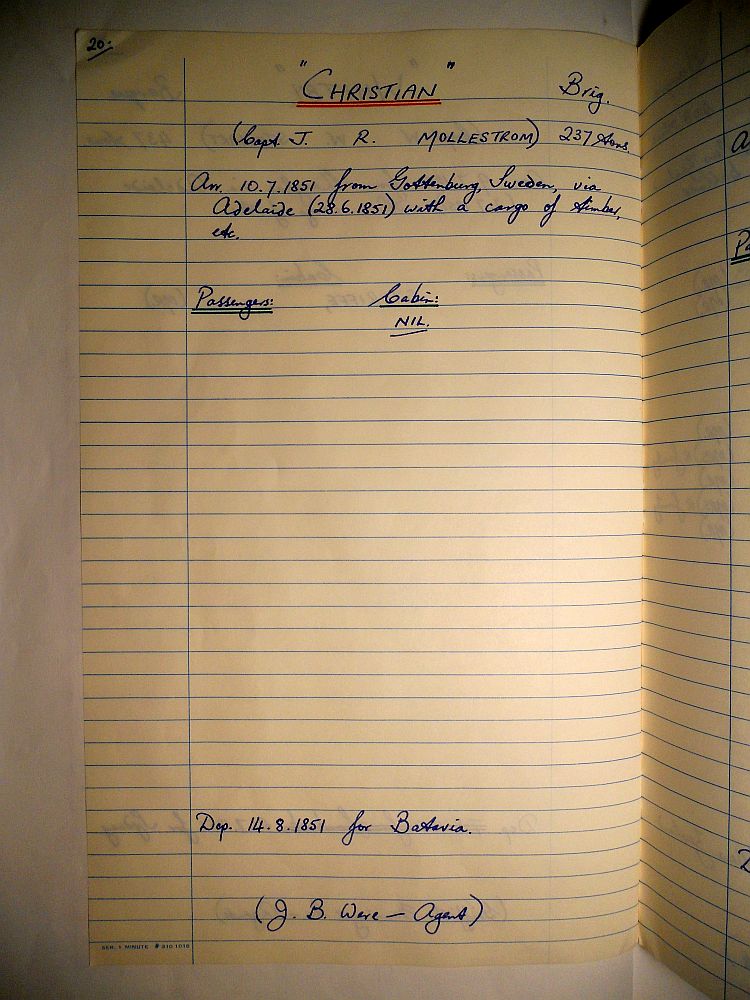 20.
"CHRISTIAN" Brig.
(Capt. J. R. MOLLESTROM) 237 tons.
Arr. 10.7.1851 from Gottenburg, Sweden, via
Adelaide (28.6.1851) with a cargo of timber,
etc.
Passengers: Cabin:
NIL.
Dep. 14.8.1851 for Batavia.
(J. B. Were — Agent)